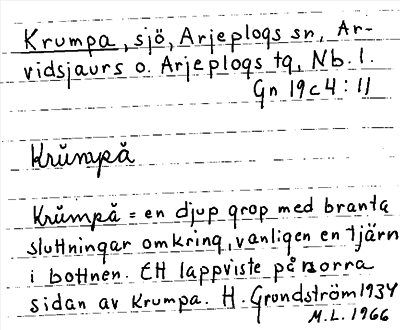 Krumpa, sjö, Arjeplogs sn, Ar-
vidsjaurs o. Arjeplogs tg, Nb. l.
Gn 19c4:11
Krŭmpă
Krŭmpă = en djup grop med branta
sluttningar omkring, vanligen en tjärn
i bottnen. Ett lappviste på norra
sidan av Krumpa. H. Grundström 1934
M.L. 1966